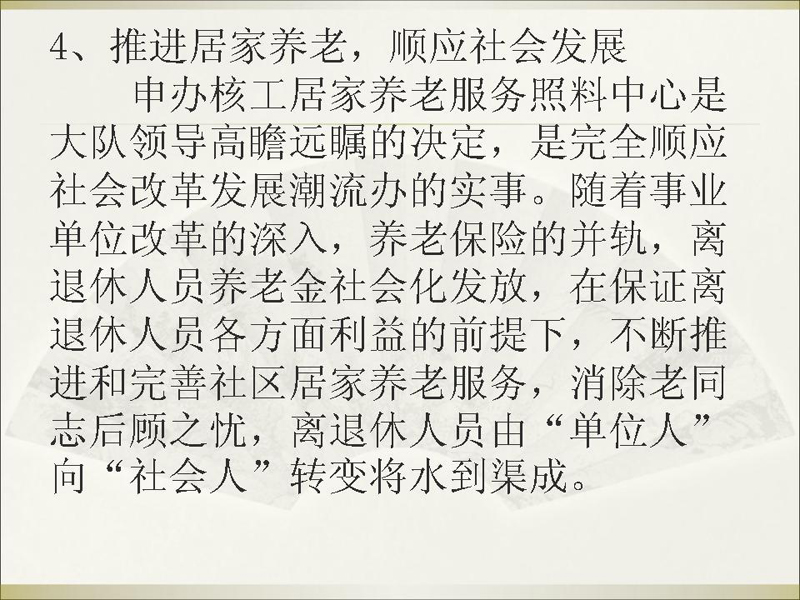 4、推进居家养老，顺应社会发展
申办核工居家养老服务照料中心是
大队领导高瞻远瞩的决定，是完全顺应
社会改革发展潮流办的实事。随着事业
单位改革的深入，养老保险的并轨，离
退休人员养老金社会化发放，在保证离
退休人员各方面利益的前提下，不断推
进和完善社区居家养老服务，消除老同
志后顾之忧，离退休人员由“单位人”
向“社会人”转变将水到渠成。